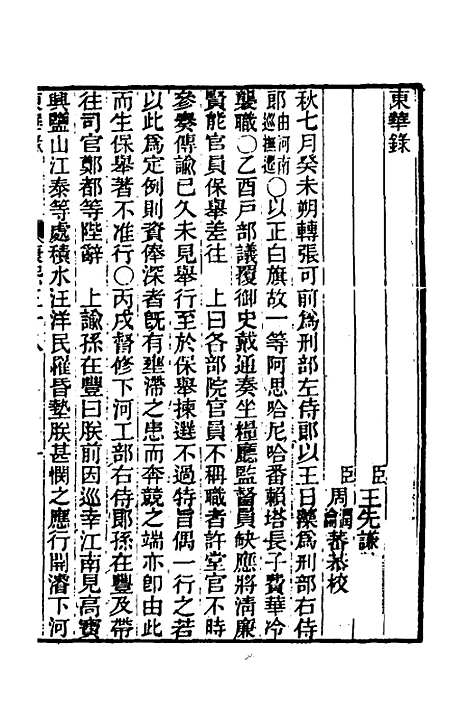 東華錄
臣王先謙
臣周潤蕃
周瀹蕃恭校
秋七月癸未朔轉張可前爲刑部左侍郎以王日藻爲刑部右侍
郎由河南巡撫遷○以正白旗故一等阿思哈尼哈番賴塔長子費華冷
襲職○乙酉戸部議覆御史戴通奏坐糧廳監督員缺應將淸廉
賢能官員保舉差往　上曰各部院官員不稱職者許堂官不時
參奏傳諭已久未見舉行至於保舉揀選不過特旨偶一行之若
以此爲定例則資俸深者旣有壅滯之患而奔競之端亦卽由此
而生保舉著不准行○丙戌督修下河工部右侍郎孫在豐及帶
往司官鄭都等陛辭　上諭孫在豐曰朕前因巡幸江南見高寶
興鹽山江泰等處積水汪洋民罹昏墊朕甚憫之應行開濬下河